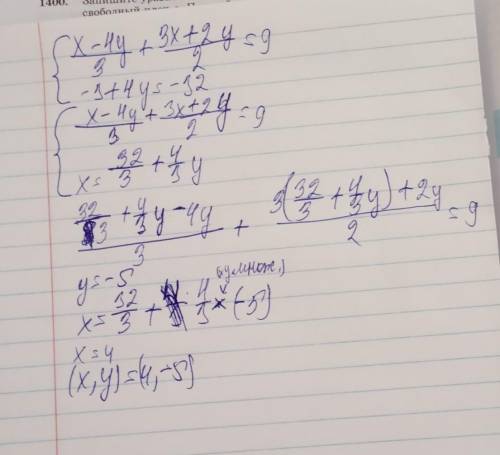 1400. Запишите
свободный
{ x-4y/3 + 3x+2y/2 = 9
-3+4y=-32
{ x-4y/3 + 3x+2y/2 = 9
x= 32/3 + 4/3 y
32/3 + 4/3 y - 4y / 3 + 3(32/3 + 4/3 y) + 2y / 2 = 9
y=-5
(умнож.)
x= 32/3 + 4/3 × (-5)
x=4
(x,y)=(4,-5)